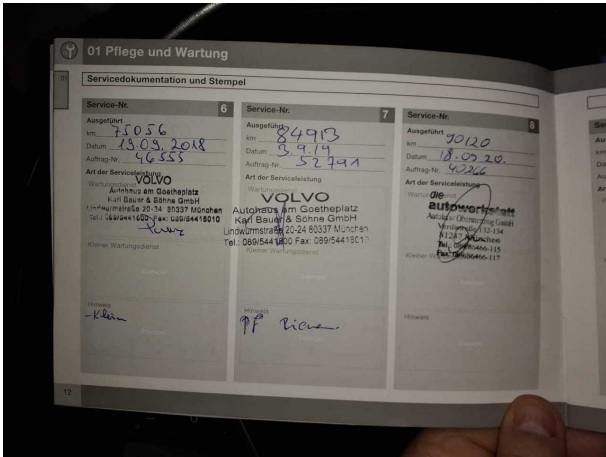 01 Pflege und Wartung
01
Servicedokumentation und Stempel
Service-Nr. 6
Ausgeführt
km 75056
Datum 19.09.2018
Auftrag-Nr. 46555
Art der Serviceleistung
Wartungsdienst
VOLVO
Autohaus am Goetheplatz
Karl Bauer & Söhne GmbH
Lindwurmstraße 20-24 80337 München
Tel.: 089/5441800 Fax: 089/54418010
Kleiner Wartungsdienst
Stempel
Hinweis
-Klein
Stempel
Service-Nr. 7
Ausgeführt
km 84913
Datum 3.9.19
Auftrag-Nr. 52791
Art der Serviceleistung
Wartungsdienst
VOLVO
Autohaus am Goetheplatz
Karl Bauer & Söhne GmbH
Lindwurmstraße 20-24 80337 München
Tel.: 089/5441800 Fax: 089/5441801
Kleiner Wartungsdienst
Stempel
Hinweis
Stempel
Service-Nr. 8
Ausgeführt
km 90120
Datum 18.09.20.
Auftrag-Nr. 40266
Art der Serviceleistung
die
autowerkstatt
GmbH
132-134
81247 München
Kleiner
Hinweis
12